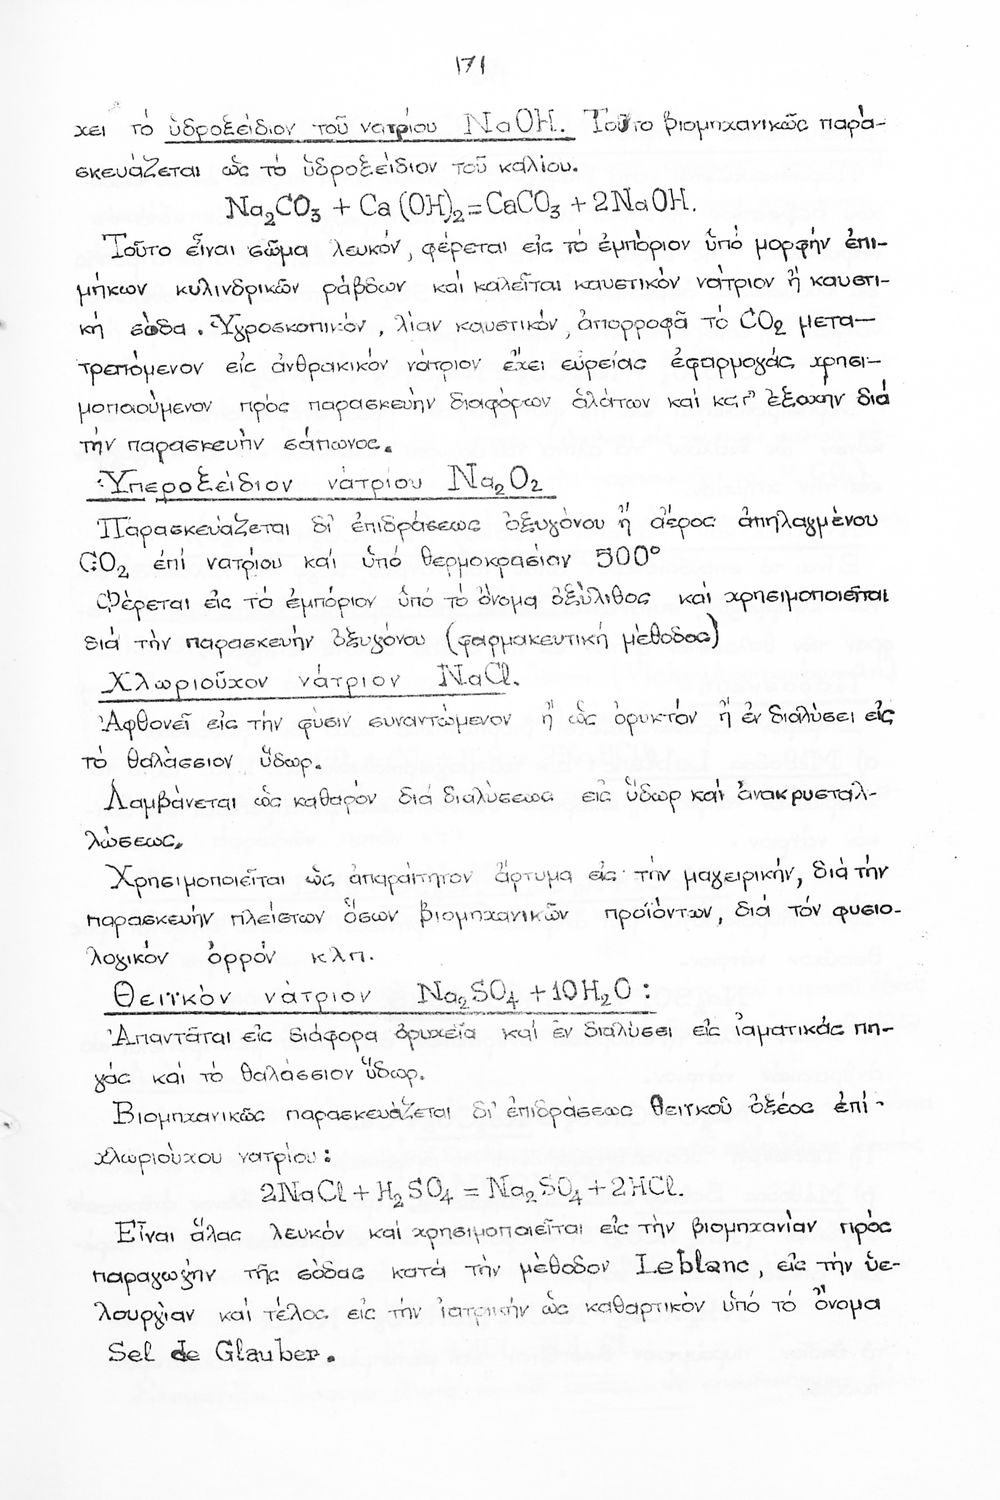 171
χει τό ὑδροξείδιον τοῦ νατρίου NaOH. Τοῦτο βιομηχανικῶς παρα-
σκευάζεται ὡς τό ὑδροξείδιον τοῦ καλίου.
Na₂CO₃ + Ca (OH)₂ = CaCO₃ + 2NaOH.
Τοῦτο εἶναι σῶμα λευκόν, φέρεται εἰς τό ἐμπόριον ὑπό μορφήν ἐπι-
μήκων κυλινδρικῶν ράβδων καί καλεῖται καυστικόν νάτριον ἤ καυστι-
κή σόδα. Ὑγροσκοπικόν, λίαν καυστικόν, ἀπορροφᾶ τό CO₂ μετα-
τρεπόμενον εἰς ἀνθρακικόν νάτριον ἔχει εὑρείας ἐφαρμογάς, χρησι-
μοποιούμενον πρός παρασκευήν διαφόρων ἁλάτων καί κατ' ἐξοχήν διά
τήν παρασκευήν σάπωνος.
Ὑπεροξείδιον νάτριου Na₂O₂
Παρασκευάζεται δι' ἐπιδράσεως ὀξυγόνου ἤ ἀέρος ἀπηλαγμένου
CO₂ ἐπί νατρίου καί ὑπό θερμοκρασίαν 500°
Φέρεται εἰς τό ἐμπόριον ὑπό τό ὄνομα ὀξύλιθος καί χρησιμοποιεῖται
διά τήν παρασκευήν ὀξυγόνου (φαρμακευτική μέθοδος)
Χλωριοῦχον νάτριον NaCl.
Ἀφθονεῖ εἰς τήν φύσιν συναντώμενον ἤ ὡς ὀρυκτόν ἤ ἐν διαλύσει εἰς
τό θαλάσσιον ὕδωρ.
Λαμβάνεται ὡς καθαρόν διά διαλύσεως εἰς ὕδωρ καί ἀνακρυσταλ-
λώσεως.
Χρησιμοποιεῖται ὡς ἀπαραίτητον ἄρτυμα εἰς τήν μαγειρικήν, διά τήν
παρασκευήν πλείστων ὅσων βιομηχανικῶν προϊόντων, διά τόν φυσιο-
λογικόν ὀρρόν κλπ.
Θειϊκόν νάτριον Na₂SO₄ + 10H₂O :
Ἀπαντᾶται εἰς διάφορα ὀρυχεῖα καί ἐν διαλύσει εἰς ἰαματικάς πη-
γάς καί τό θαλάσσιον ὕδωρ.
Βιομηχανικῶς παρασκευάζεται δι' ἐπιδράσεως θειϊκοῦ ὀξέος ἐπί
χλωριούχου νατρίου :
2NaCl + H₂SO₄ = Na₂SO₄ + 2HCl.
Εἶναι ἅλας λευκόν καί χρησιμοποιεῖται εἰς τήν βιομηχανίαν πρός
παραγωγήν τῆς σόδας κατά τήν μέθοδον Leblanc, εἰς τήν ὑε-
λουργίαν καί τέλος εἰς τήν ἰατρικήν ὡς καθαρτικόν ὑπό τό ὄνομα
Sel de Glauber.